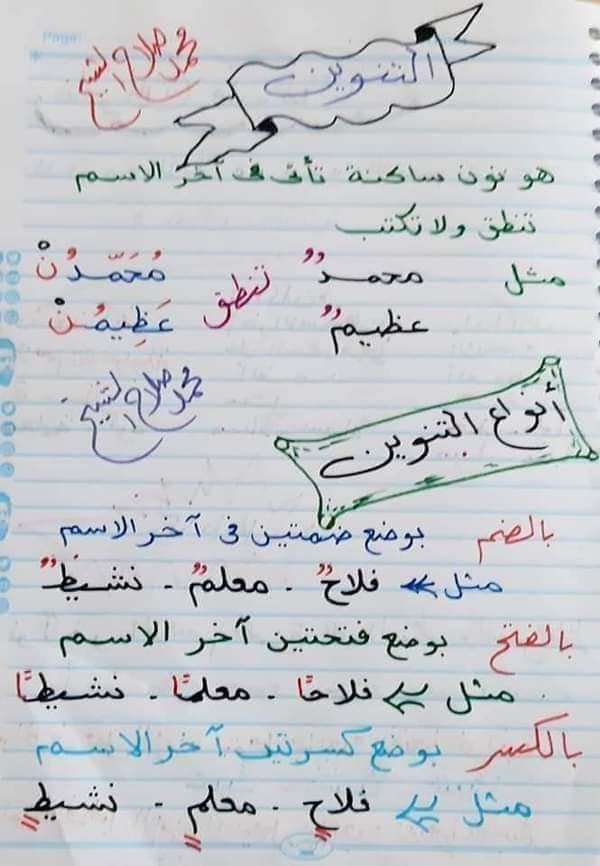 Page:
التنوين
محمد صلاح الشيخ
هو نون ساكنة تأتى فى آخر الاسم
تنطق ولا تكتب
مثل محمدٌ تنطق مُحَمّدُنْ
عظيمٌ عَظِيمُنْ
محمد صلاح الشيخ
أنواع التنوين
بالضم بوضع ضمتين فى آخر الاسم
مثل فلاحٌ - معلمٌ - نشيطٌ
بالفتح بوضع فتحتين آخر الاسم
مثل فلاحًا - معلمًا - نشيطًا
بالكسر بوضع كسرتين آخر الاسم
مثل فلاحٍ - معلمٍ - نشيطٍ